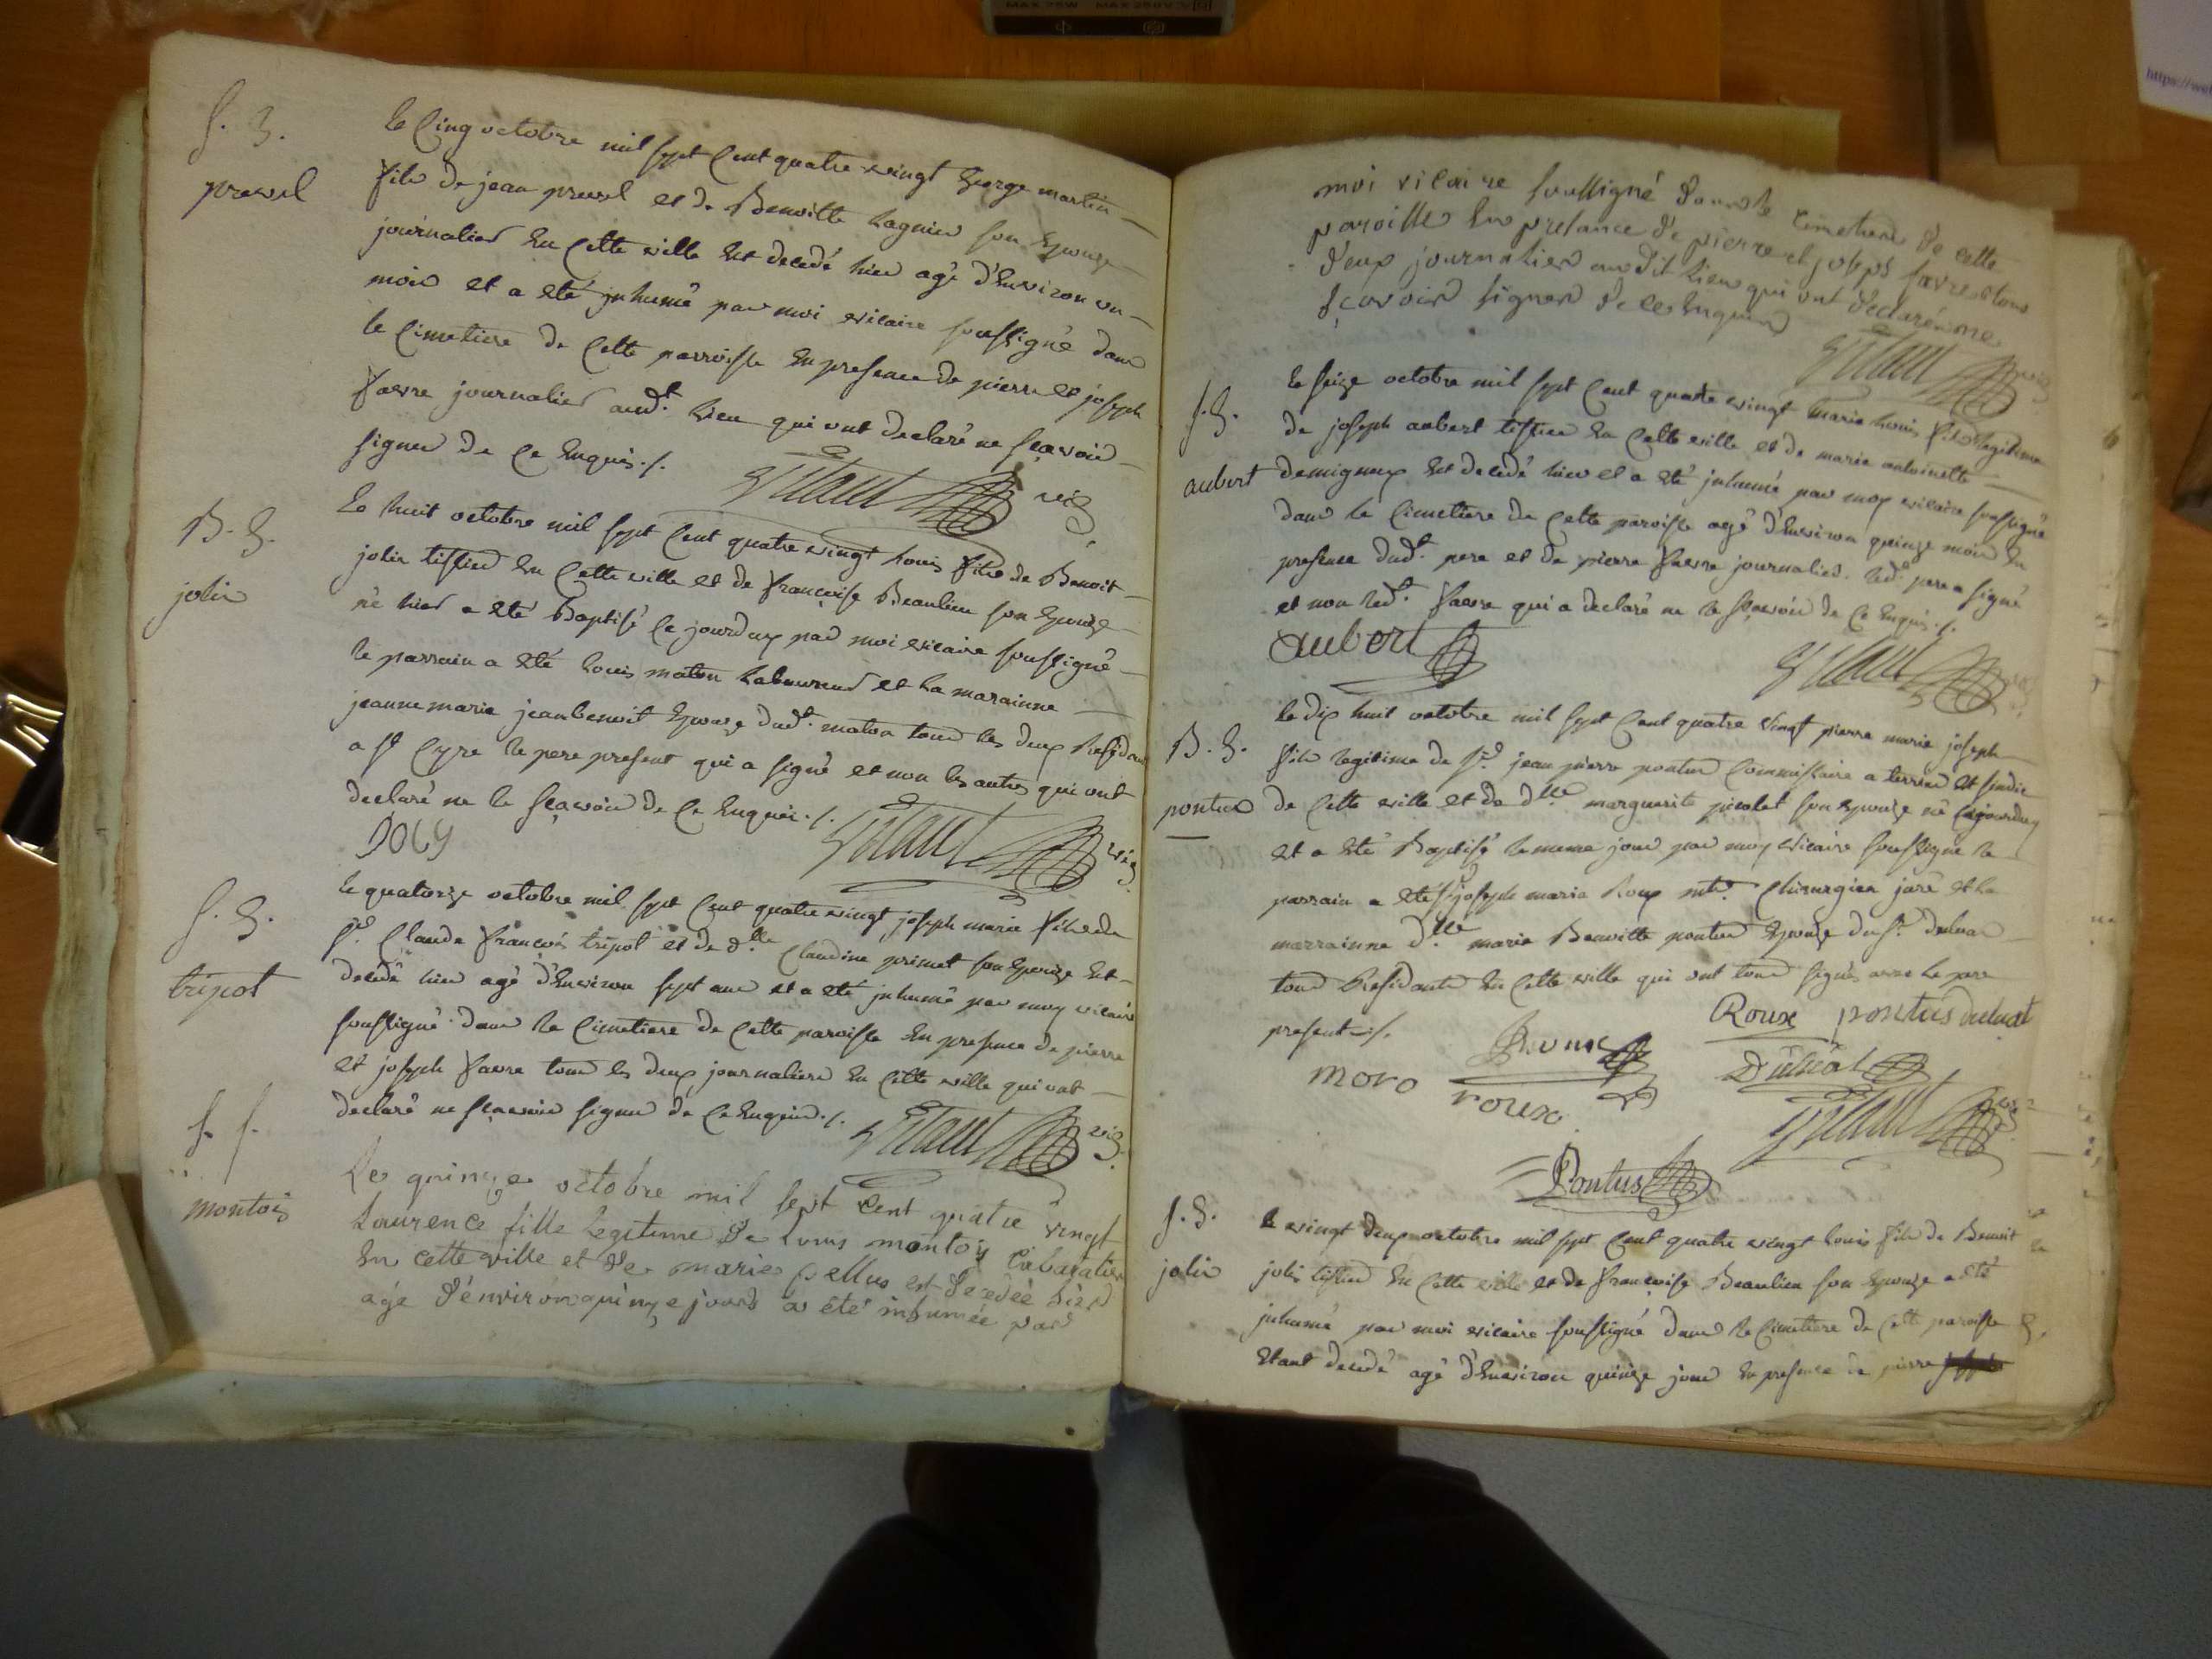 MAX 25W MAX 250V
https://wel
S. G.
prevel
le Cinq octobre mil sept Cent quatre vingt George martin
fils de jean prevel et de Benoitte Lagnier son Epouze
journalier En Cette ville Est decedé hier agé d'Environ un
mois et a eté jnhumé par moi vicaire soussigné dans
le Cimetiere de Cette parroisse En presence de pierre et joseph
favre journalier aud.t Lieu qui ont declaré ne sçavoir
signer de Ce Enquis ./.
vic
B. G.
jolii
Le huit octobre mil sept Cent quatre vingt Louis fils de Benoit
tissier En Cette ville et de françoise Beaulieu son Epouze
né hier a eté Baptisé Ce jourduy par moi vicaire soussigné
le parrain a eté Louis maton Laboureur et La marainne
jeanne marie jeanbenoit Epouze dud.t maton tous les deux Residans
a s.t Cyre le pere present qui a signé et non les autres qui ont
declaré ne le sçavoir de Ce Enquis ./.
JOLY
vic
S. G.
tripot
le quatorze octobre mil sept Cent quatre vingt joseph marie fils de
s.r Claude françois tripot et de d.lle Claudine primet son Epouze Est
decedé hier agé d'Environ sept ans et a eté jnhumé par moy vicaire
soussigné dans le Cimetiere de Cette paroisse En presence de pierre
et joseph favre tous les deux journaliers En Cette ville qui ont
declaré ne sçavoir signer de Ce Enquis ./.
vic
S. f.
montois
Le quinze octobre mil sept Cent quatre vingt
Laurence fille Legitime de Louis montois Cabaratier
En cette ville et de marie pellus est decedée hier
age d'environ quinze jours a été inhumée par
moi vicaire soussigné dans le Cimetiere de cette
paroisse En presance de pierre et joseph favre tous
deux journalier au dit Lieu qui ont declaré ne
sçavoir signer de ce Enquis
S. G.
aubert
le seize octobre mil sept Cent quatre vingt marie Louis fils legitime
de joseph aubert tissier En Cette ville et de marie antoinette
demigneux Est decedé hier et a eté jnhumé par moy vicaire soussigné
dans le Cimetiere de Cette paroisse agé d'Environ quinze mois En
presence dud.t pere et de pierre favre journalier. led.t pere a signé
et non led.t favre qui a declaré ne le sçavoir de Ce Enquis ./.
aubert
B. G.
pontus
le dix huit octobre mil sept Cent quatre vingt pierre marie joseph
fils legitime de s.r jean pierre pontus Commissaire a terrier et sindic
de Cette ville et de d.lle marguerite picolet son Epouze né Cejourduy
et a eté Baptisé le meme jour par moy vicaire soussigné le
parrain a eté s.r joseph marie Roux m.tre Chirurgien juré et la
marrainne d.lle marie Benoitte pontus Epouze du s.r
tous Residants En Cette ville qui ont tous signés avec le pere
present ./.
Roux pontus
moro
roux
Pontus
S. G.
le vingt deux octobre mil sept Cent quatre vingt Louis fils de Benoit
tissier En Cette ville et de françoise Beaulieu son Epouze a eté
jnhumé par moi vicaire soussigné dans le Cimetiere de Cette paroisse
Etant decedé agé d'Environ quinze jours En presence de pierre